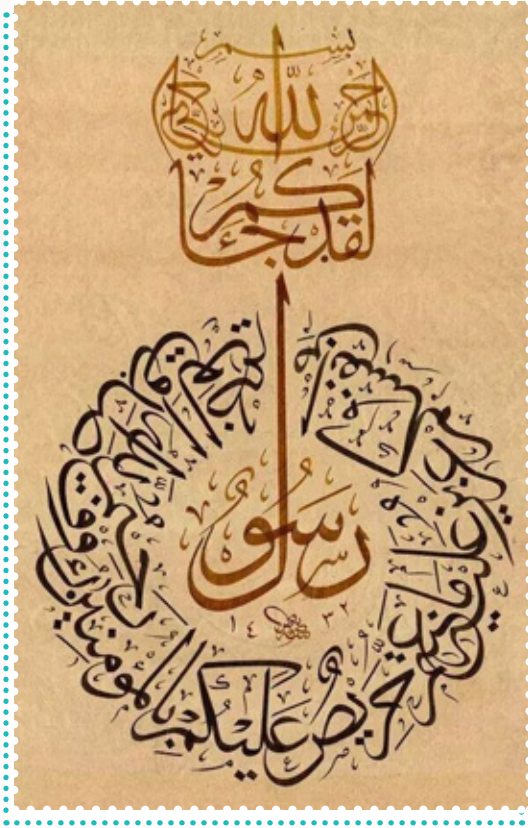 بسم الله الرحمن الرحيم
لقد جاءكم
رسول
من أنفسكم عزيز عليه ما عنتم حريص عليكم بالمؤمنين رءوف رحيم
١٤٣٢